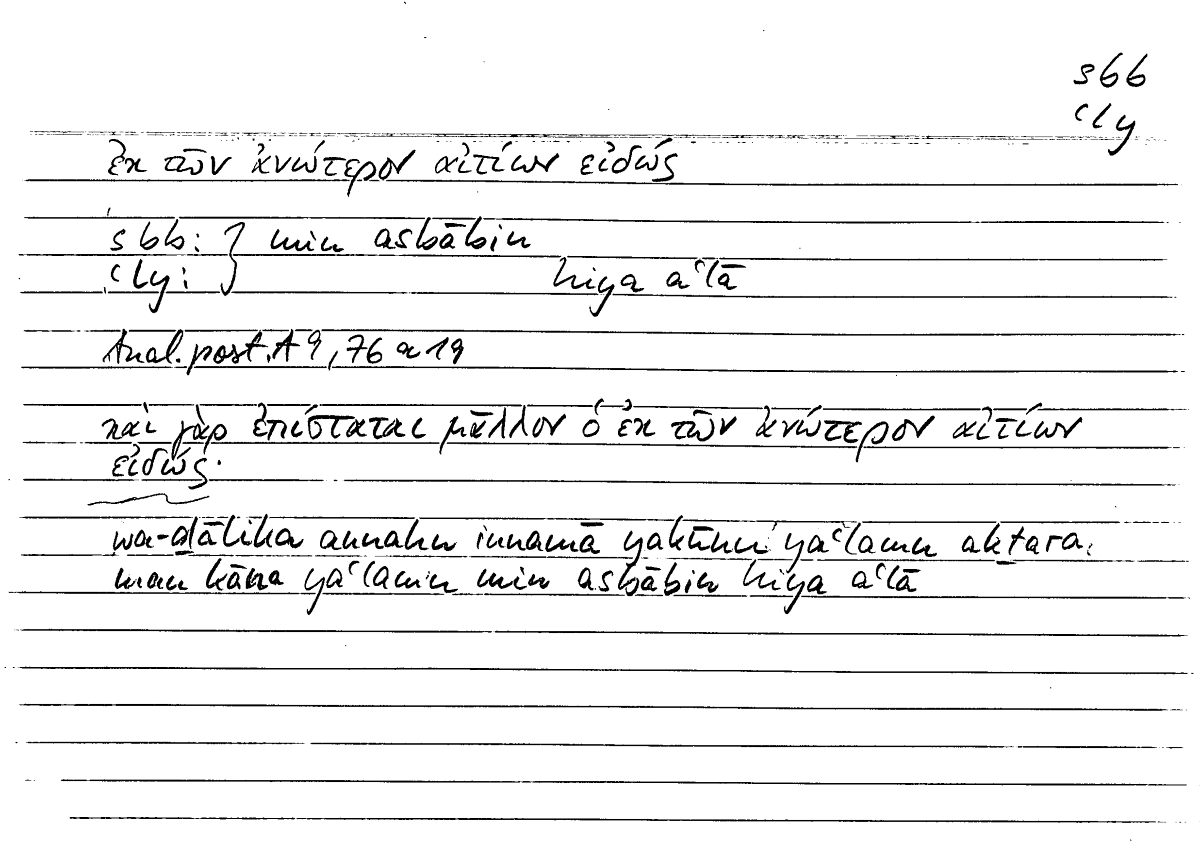 sbb
ʿly
ἐκ τῶν ἀνώτερον αἰτίων εἰδώς
sbb: } min asbābin
ʿly: } hiya aʿlā
Anal. post. A 9, 76 a 19
καὶ γὰρ ἐπίσταται μᾶλλον ὁ ἐκ τῶν ἀνώτερον αἰτίων
εἰδώς·
wa-ḏālika annahu innamā yakūnu yaʿlamu akṯara
man kāna yaʿlamu min asbābin hiya aʿlā